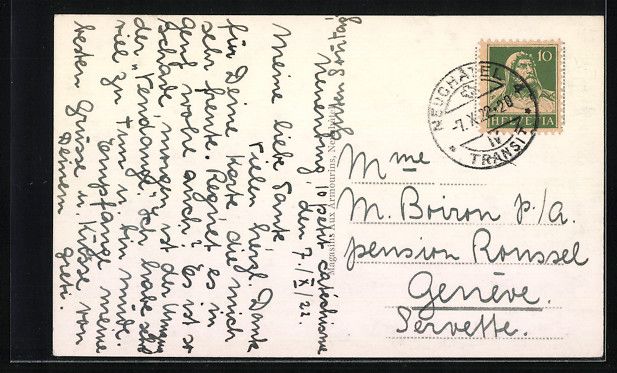 Guten Sonntag,
Neuveville, 10 petit catéchisme
den 7./X 22.
Meine liebe Tante
Vielen herzl. Dank
für Deine Karte, die mich
sehr freute. Regnet es in
Genf wohl auch? Es ist so
schade, morgen ist der
der "vendange". Ich habe sehr
viel zu tun u. bin müde.
Empfange meine
besten Grüsse u. Küsse von
Deinem Greti.
Magasins Aux Armourins, Neuchâtel
10
HELVETIA
NEUCHATEL 4
-7.X.22-20
IV
* TRANSIT *
Mme
M. Boiron p/a.
pension Roussel
Genève.
Servette.